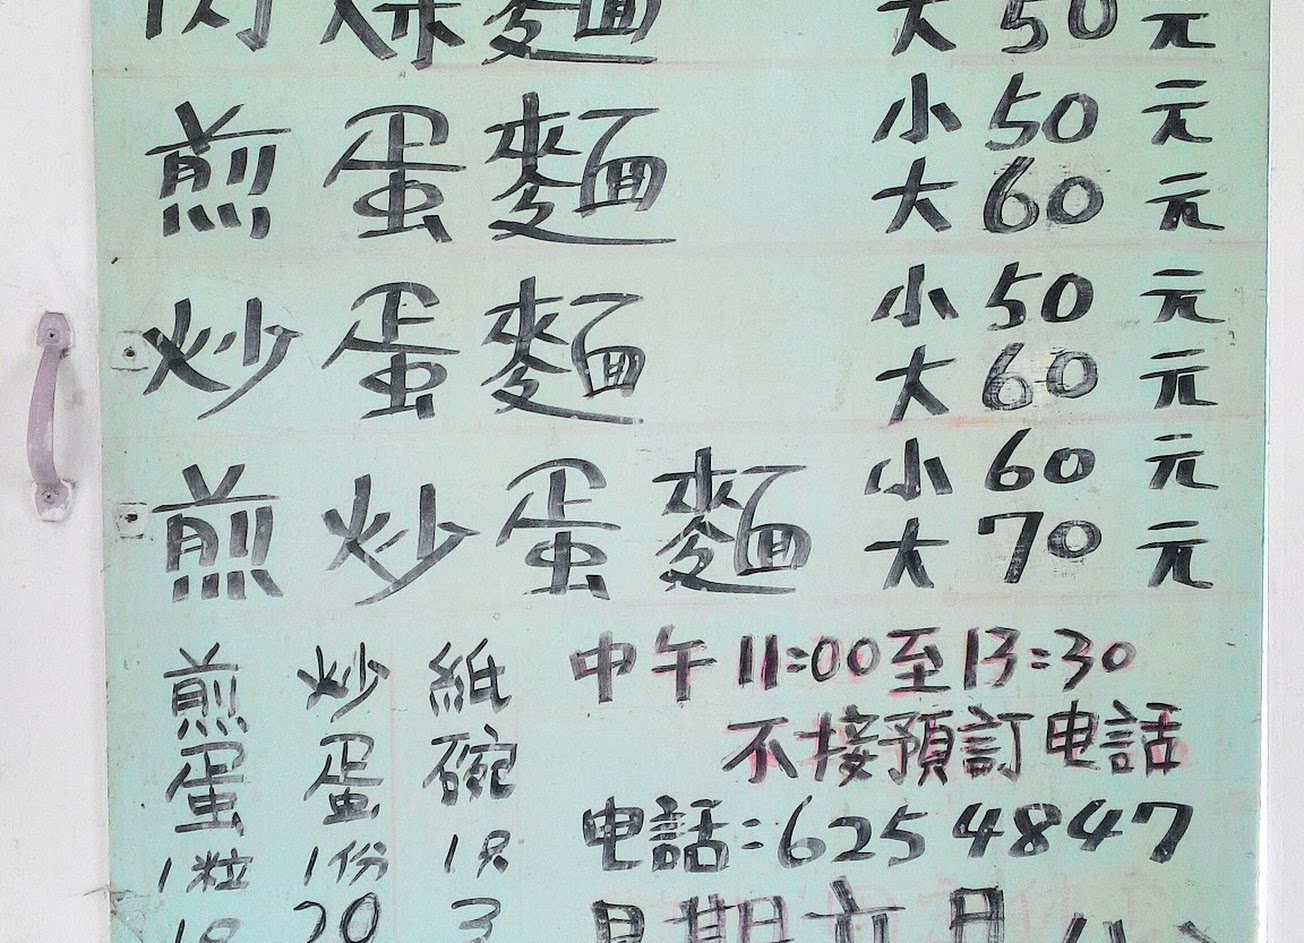 麵 大 50 元
煎蛋麵 小 50 元
大 60 元
炒蛋麵 小 50 元
大 60 元
煎炒蛋麵 小 60 元
大 70 元
煎蛋1粒
炒蛋1份 20
紙碗1只 3
中午11:00至13:30
不接預訂电話
电話:625 4847
星期六日